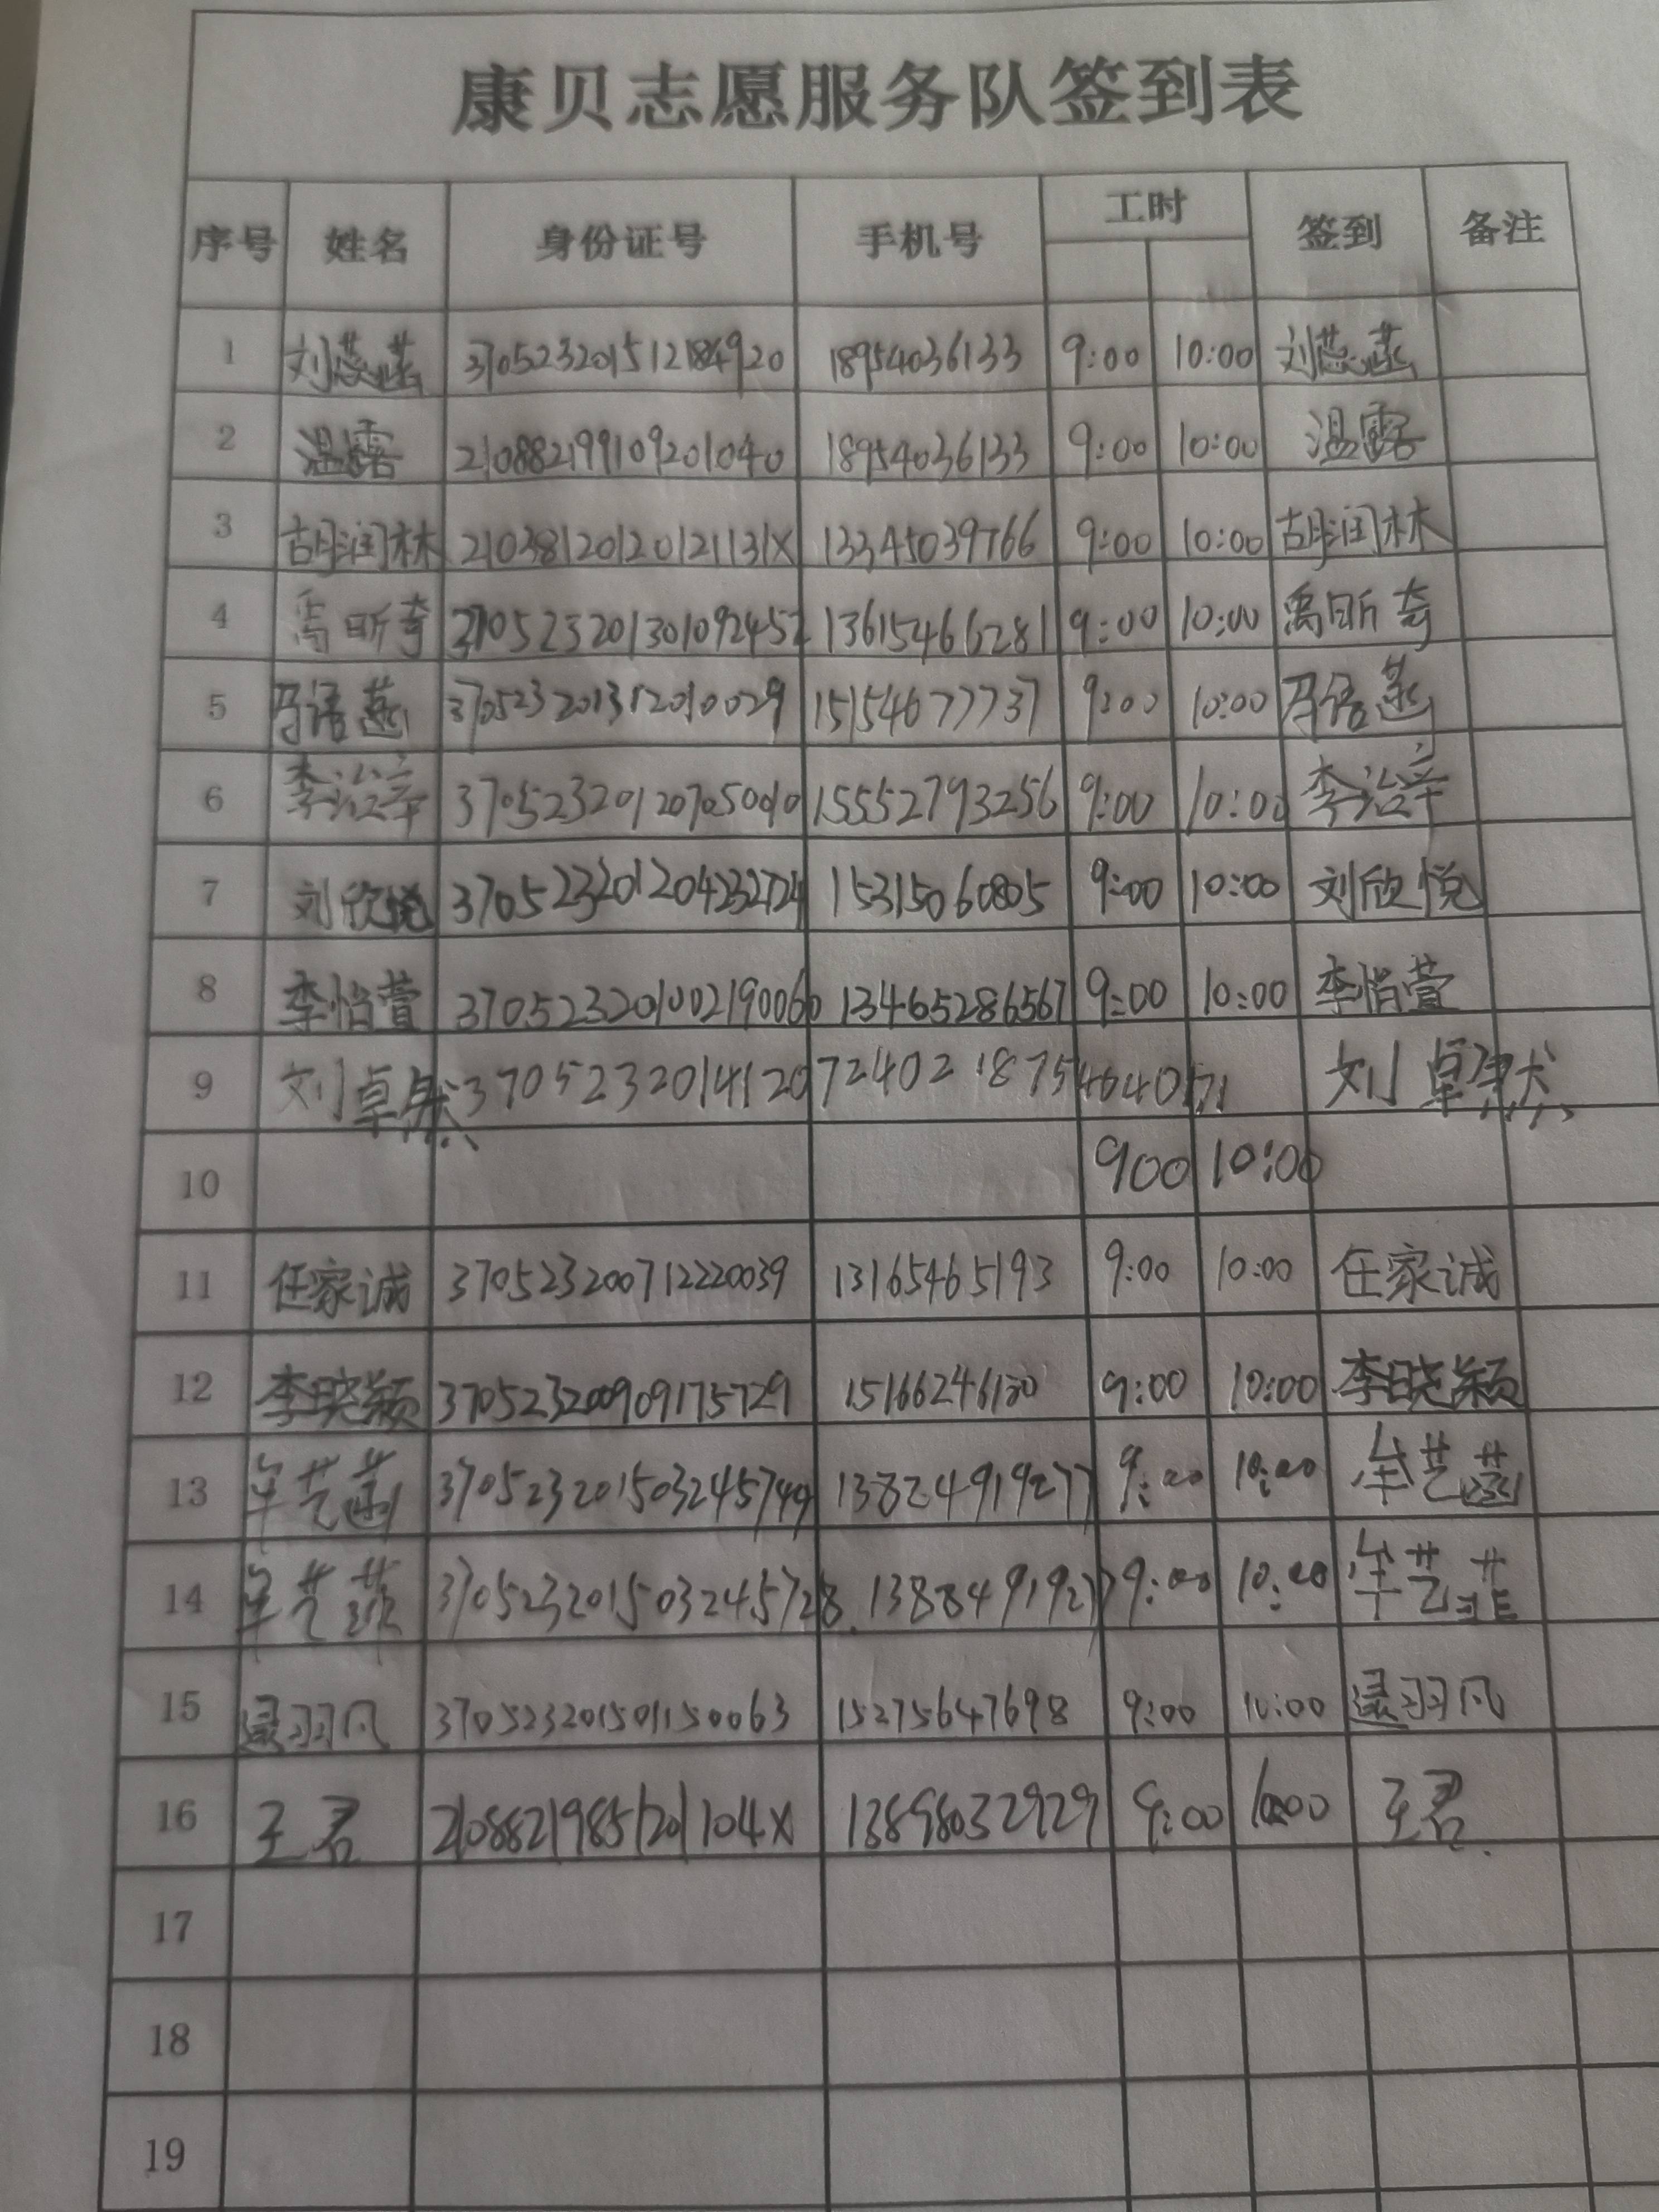 康贝志愿服务队签到表
序号 姓名 身份证号 手机号 工时 签到 备注
1 刘蕊菡 370523201512184920 18954036133 9:00 10:00 刘蕊菡
2 温露 210882199109201040 18954036133 9:00 10:00 温露
3 胡润林 21038120120121131X 13345039766 9:00 10:00 胡润林
4 禹昕奇 370523201301092452 9:00 10:00 禹昕奇
5 马语菡 370523201312010029 15154677737 9:00 10:00 马语菡
6 李治辛 370523201207050010 15552793256 9:00 10:00 李治辛
7 刘欣悦 370523201204232724 15315060805 9:00 10:00 刘欣悦
8 李怡萱 370523201002190060 13465286567 9:00 10:00 李怡萱
9 刘卓然 370523201412072402 18754640171 刘卓然
10 900 10:00
11 任家诚 370523200712220039 13165465193 9:00 10:00 任家诚
12 李晓颖 370523200909175729 15166246130 9:00 10:00 李晓颖
13 牟艺菡 370523201503245744 9:00 10:00 牟艺菡
14 牟艺菲 370523201503245728 13884919277 9:00 10:00 牟艺菲
15 逯羽凡 370523201501150063 15275647698 9:00 10:00 逯羽凡
16 王君 21088219851201104X 13898032929 9:00 10:00 王君
17
18
19